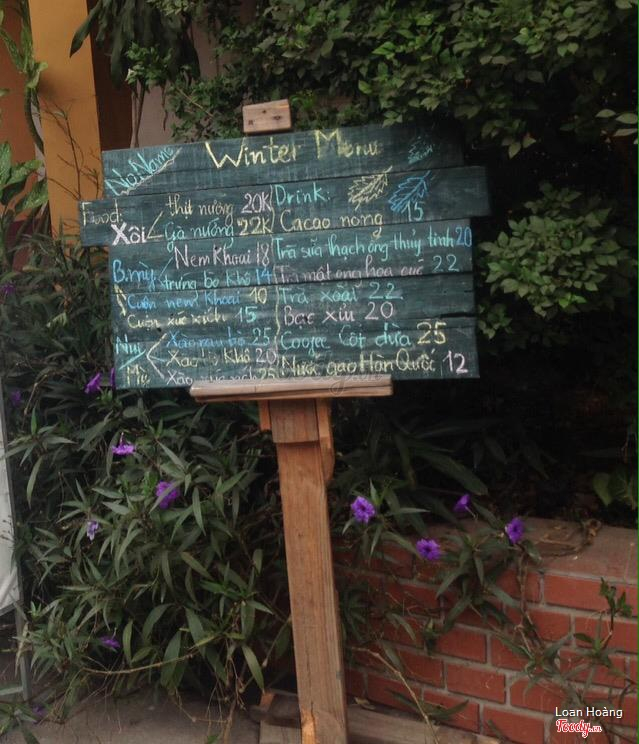 No Name
Winter Menu
Food:
Xôi
thịt nướng 20K
Gà nướng 22K
B.mỳ
Nem Khoai 18
trứng bò khô 14
Cuốn nem Khoai 10
Cuốn xúc xích 15
Nui
Mỳ
Xào rau bò 25
Xào bò Khô 20
Xào xúc xích 25
Drink:
Cacao nóng 15
Trà sữa thạch ông thủy tinh 20
Trà mật ong hoa cúc 22
Trà xoài 22
Bạc xỉu 20
Coffee Cốt dừa 25
Nước gạo Hàn Quốc 12
Loan Hoàng
Foody.vn